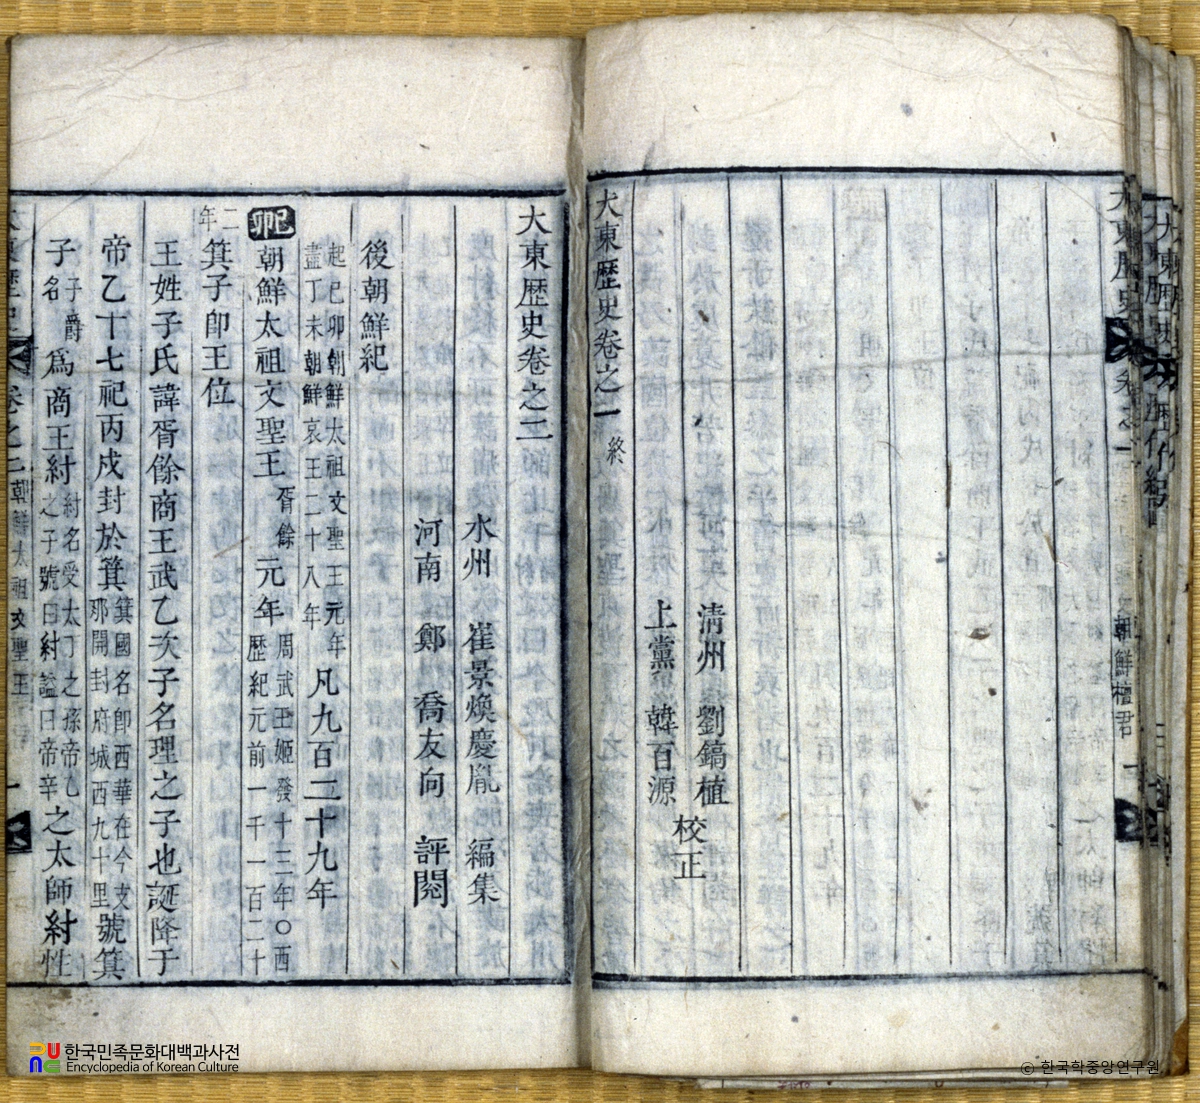 大東歷史
朝鮮檀君
大東歷史卷之一終
清州 劉鎬植
上黨 韓百源
校正
大東歷史卷之二
水州 崔景煥慶胤 編集
河南 鄭 喬友向 評閱
後朝鮮紀
起己卯朝鮮太祖文聖王元年
盡丁未朝鮮哀王二十八年
凡九百二十九年
己卯
朝鮮太祖文聖王胥餘元年
周武王姬發十三年〇西
歷紀元前一千一百二十
二年
箕子卽王位
王姓子氏諱胥餘商王武乙次子名理之子也誕降于
帝乙十七祀丙戍封於箕
箕國名卽西華在今支
那開封府城西九十里
號箕
子
子爵
名
爲商王紂
紂名受太丁之孫帝乙
之子號曰紂諡曰帝辛
之太師紂性
大東歷史 卷之二 朝鮮太祖文聖王 一
한국민족문화대백과사전
Encyclopedia of Korean Culture
© 한국학중앙연구원